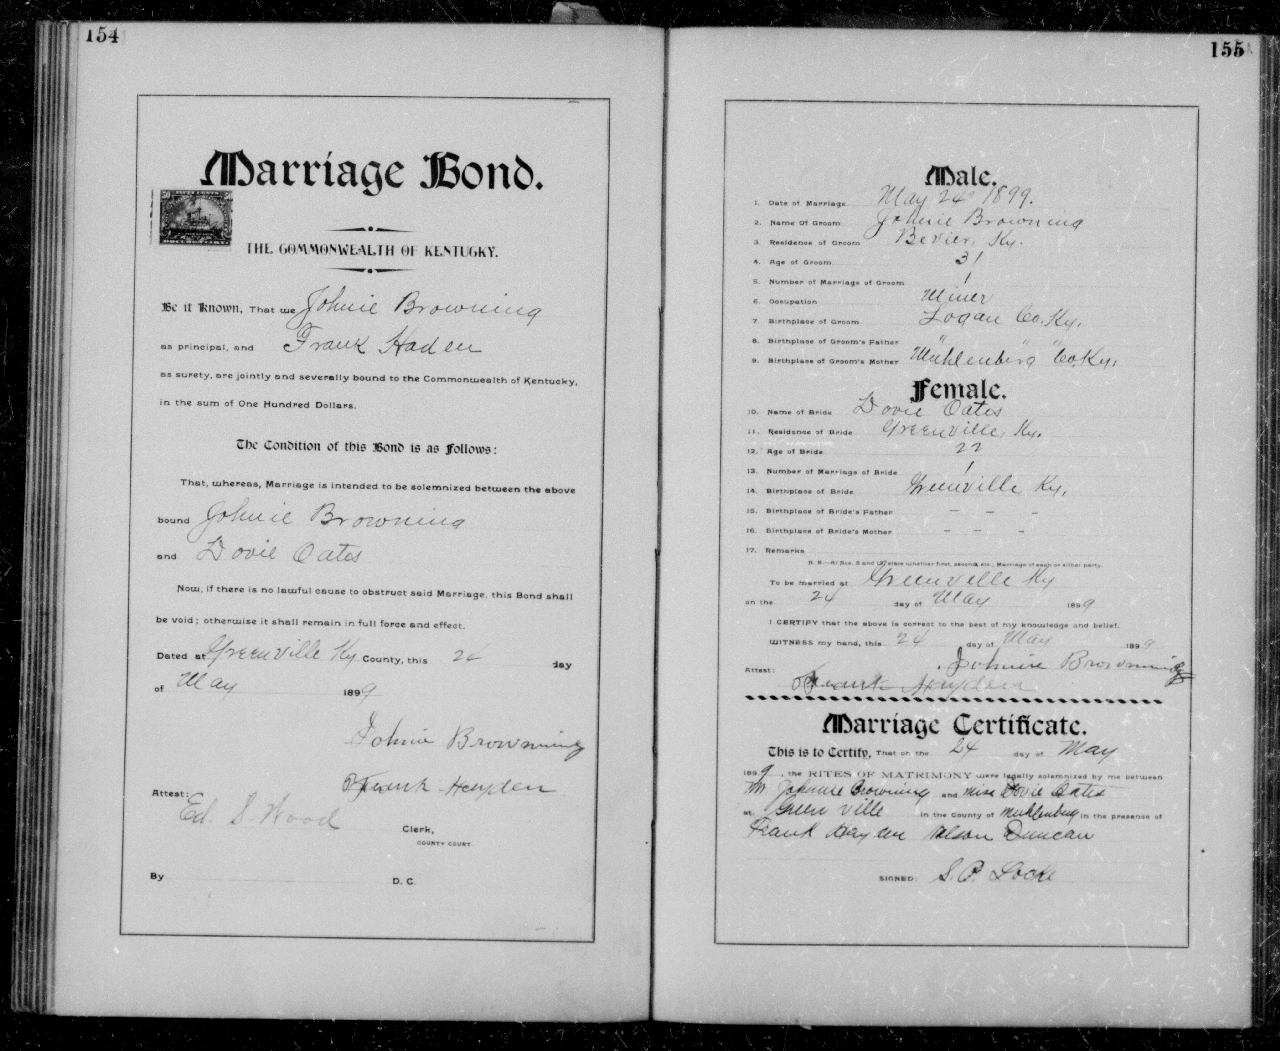 154
Marriage Bond.
FIFTY CENTS
DOCUMENTARY
THE COMMONWEALTH OF KENTUCKY.
Be it known, That we Johnie Browning
as principal, and Frank Haden
as surety, are jointly and severally bound to the Commonwealth of Kentucky,
in the sum of One Hundred Dollars.
The Condition of this Bond is as Follows:
That, whereas, Marriage is intended to be solemnized between the above
bound Johnie Browning
and Dovie Oates
Now, if there is no lawful cause to obstruct said Marriage, this Bond shall
be void; otherwise it shall remain in full force and effect.
Dated at Greenville Ky County, this 24 day
of May 1899
Johnie Browning
Frank Hayden
Attest:
Ed. S. Wood
Clerk,
COUNTY COURT.
By D. C.
155
Male.
1. Date of Marriage May 24" 1899.
2. Name Of Groom Johnie Browning
3. Residence of Groom Bevier, Ky.
4. Age of Groom 31
5. Number of Marriage of Groom 1
6. Occupation Miner
7. Birthplace of Groom Logan Co. Ky.
8. Birthplace of Groom's Father " "
9. Birthplace of Groom's Mother Muhlenberg Co. Ky.
Female.
10. Name of Bride Dovie Oates
11. Residence of Bride Greenville, Ky.
12. Age of Bride 22
13. Number of Marriage of Bride 1
14. Birthplace of Bride Greenville Ky.
15. Birthplace of Bride's Father - - -
16. Birthplace of Bride's Mother - - -
17. Remarks
N. B.—At Nos. 5 and 13 state whether first, second, etc., Marriage of each or either party.
To be married at Greenville Ky
on the 24 day of May 1899
I CERTIFY that the above is correct to the best of my knowledge and belief.
WITNESS my hand, this 24 day of May 1899
Johnie Browning
Attest:
Frank Hayden
Marriage Certificate.
This is to Certify, That on the 24 day of May
1899, the RITES OF MATRIMONY were legally solemnized by me between
Mr. Johnie Browning and Miss Dovie Oates
at Green ville in the County of Muhlenburg in the presence of
Frank Hayden Nelson Duncan
SIGNED: S. P. Locke